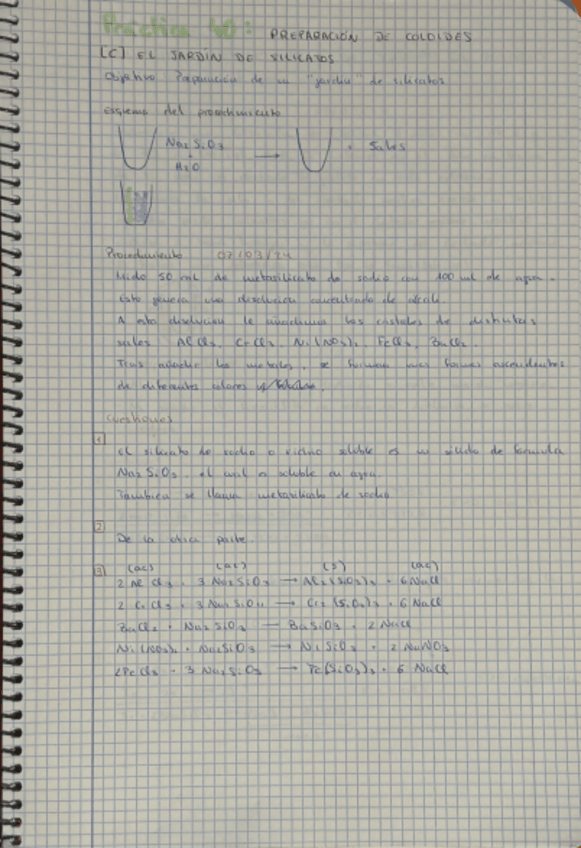 Práctica 10: PREPARACIÓN DE COLOIDES
[C] EL JARDÍN DE SILICATOS
Objetivo Preparación de un "jardín" de silicatos
esquema del procedimiento
Na2SiO3 → + Sales
+
H2O
Procedimiento 07/03/24
Mido 50 mL de metasilicato de sodio con 100 mL de agua.
Esto genera una disolución concentrada de
A esta disolución le añadimos los cristales de distintas
sales AlCl3, CrCl3, Ni(NO3)2, FeCl3, BaCl2.
Tras añadir los metales, se forman unas formas ascendentes
de diferentes colores
Cuestiones
1
el silicato de sodio o vidrio soluble es un sólido de formula
Na2SiO3, el cual es soluble en agua.
También se llama metasilicato de sodio
2
De la otra parte.
3 (ac) (ac) (s) (ac)
2 AlCl3 + 3 Na2SiO3 → Al2(SiO3)3 + 6 NaCl
2 CrCl3 + 3 Na2SiO3 → Cr2(SiO3)3 + 6 NaCl
BaCl2 + Na2SiO3 → BaSiO3 + 2 NaCl
Ni(NO3)2 + Na2SiO3 → NiSiO3 + 2 NaNO3
2FeCl3 + 3 Na2SiO3 → Fe(SiO3)3 + 6 NaCl